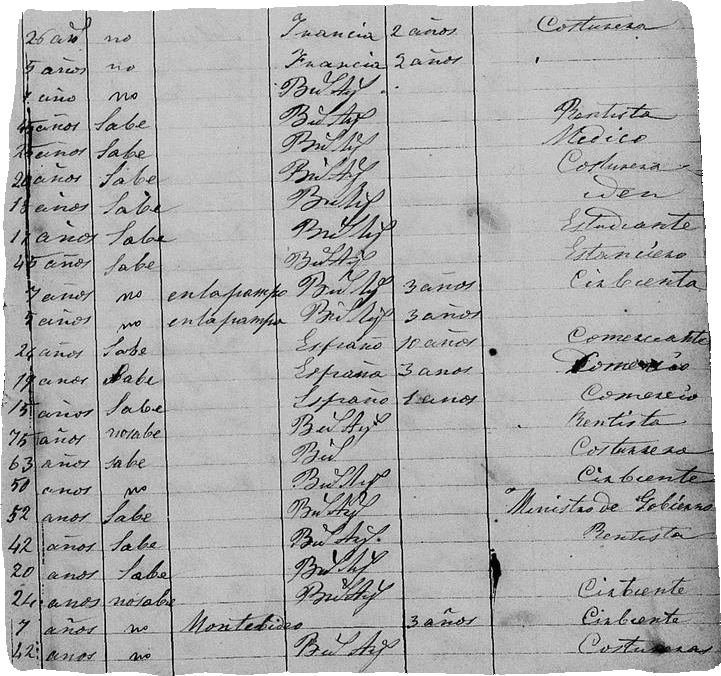 26 años no Francia 2 años Costurera
5 años no Francia 2 años
año no Bus Ays
45 años Sabe Bus Ays Rentista
25 años Sabe Bus Ays Medico
20 años Sabe Bus Ays Costurera
18 años Sabe Bus Ays iden
17 años Sabe Bus Ays Estudiante
45 años Sabe Bus Ays Estanciero
7 años no en la pampa Bus Ays 3 años Cirbienta
5 años no en la pampa Bus Ays 3 años
24 años Sabe España 10 años Comerciante
19 anos Sabe España 3 anos Comercio
15 años Sabe España 1 anos Comercio
75 años no sabe Bus Ays Rentista
63 años sabe Bus Costurera
50 anos no Bus Ays Cirbiente
52 anos Sabe Bus Ays Ministro de Gobierno
42 años Sabe Bus Ays Rentista
20 anos Sabe Bus Ays
24 anos no sabe Bus Ays Cirbiente
7 años no Montebideo 3 años Cirbiente
42 anos no Bus Ays Costureras